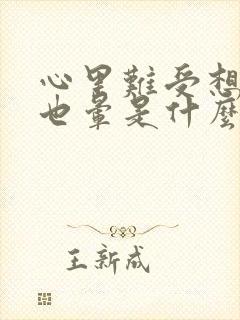 心里難受想
也暈是什麼
王新成